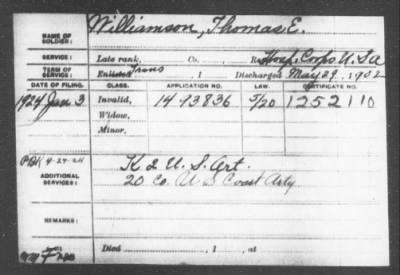 NAME OF SOLDIER: Williamson, Thomas E.
SERVICE: Late rank, Co. , Hosp. Corps U.S.A
TERM OF SERVICE: Enlisted Trans , 1 Discharged May 29, 1902
DATE OF FILING. CLASS. APPLICATION NO. LAW. CERTIFICATE NO.
1924 Jan 3 Invalid, 1413836 5/20 1252110
Widow,
Minor,
9-27-24
ADDITIONAL SERVICES: K 2 U. S. Art.
20 Co. U S Coast Arty
REMARKS:
Died , 1 , at